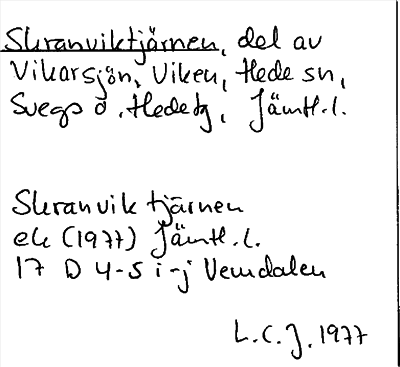 Skranviktjärnen, del av
Vikarsjön, Viken, Hede sn,
Svegs d., Hede tg, Jämtl.l.
Skranviktjärnen
ek (1977) Jämtl.l.
17 D 4-5 i-j Vemdalen
L.C.J. 1977